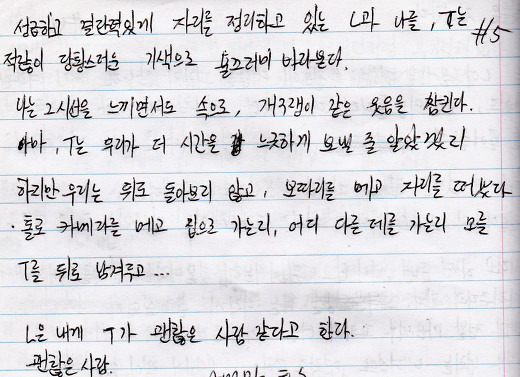 성급하고 결단력있게 자리를 정리하고 있는 L과 나를, T는 #5
적잖이 당황스러운 기색으로 물끄러미 바라본다.
나는 그 시선을 느끼면서도 속으로, 개구쟁이 같은 웃음을 참킨다.
아마, T는 우리가 더 시간을 느긋하게 보낼 줄 알았겠지
하지만 우리는 뒤로 돌아보지 않고, 보따리를 메고 자리를 떠났다
홀로 카메라를 메고 집으로 가는지, 어디 다른 데를 가는지 모를
T를 뒤로 남겨두고...
L은 내게 T가 괜찮은 사람 같다고 한다.
괜찮은 사람.